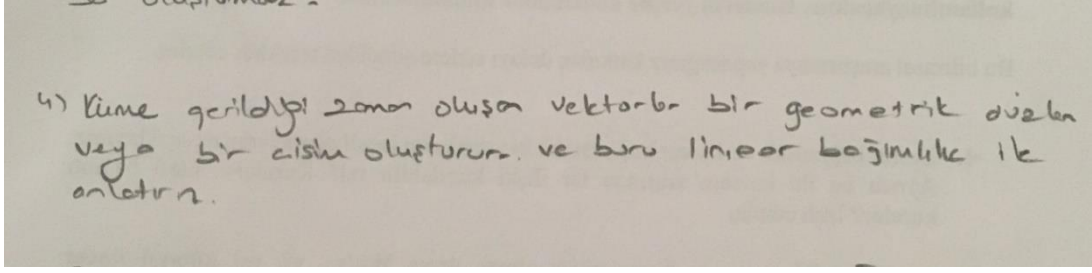 4) Küme gerildiği zaman oluşan vektörler bir geometrik düzlem
veya bir cisim oluştururum. ve bunu lineer bağımlılık ile
anlatırım.